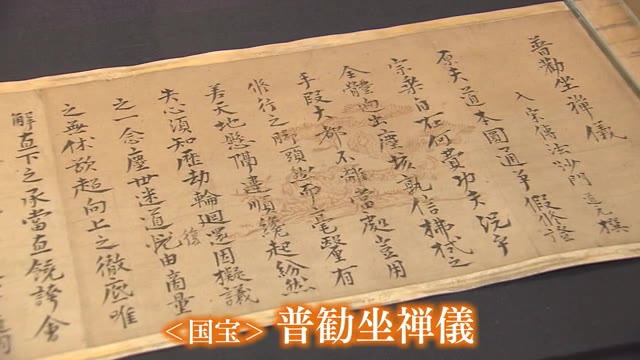 普勸坐禪儀
入宋傳法沙門 道元 撰
原夫道本圓通爭假修證
宗乘自在何費功夫況乎
全體逈出塵埃孰信拂拭之
手段大都不離當處豈用
修行之脚頭然而毫釐有
差天地懸隔違順纔起紛然
失心須知歷劫輪迴還因擬議
之一念塵世迷道由商量
之無休欲超向上之徹底唯
解直下之承當直饒誇會
＜国宝＞ 普勧坐禅儀